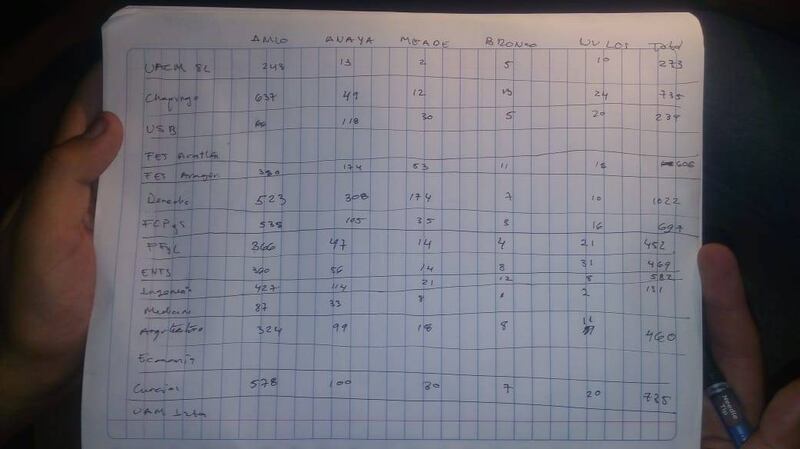 AMLO ANAYA MEADE BRONCO NULOS Total
UACM SL 243 13 2 5 10 273
Chapingo 637 49 12 13 24 735
USB 118 30 5 20 239
FES Acatlán
FES Aragón 350 174 53 11 18 606
Derecho 523 308 174 7 10 1022
FCPyS 538 105 35 3 16 697
FFyL 366 47 14 4 21 452
ENTS 360 56 14 8 31 469
Ingeniería 427 114 21 12 8 582
Medicina 87 33 8 1 2 131
Arquitectura 324 99 18 8 11 460
Economía
Ciencias 578 100 30 7 20 735
UAM Izta
Needle Tip